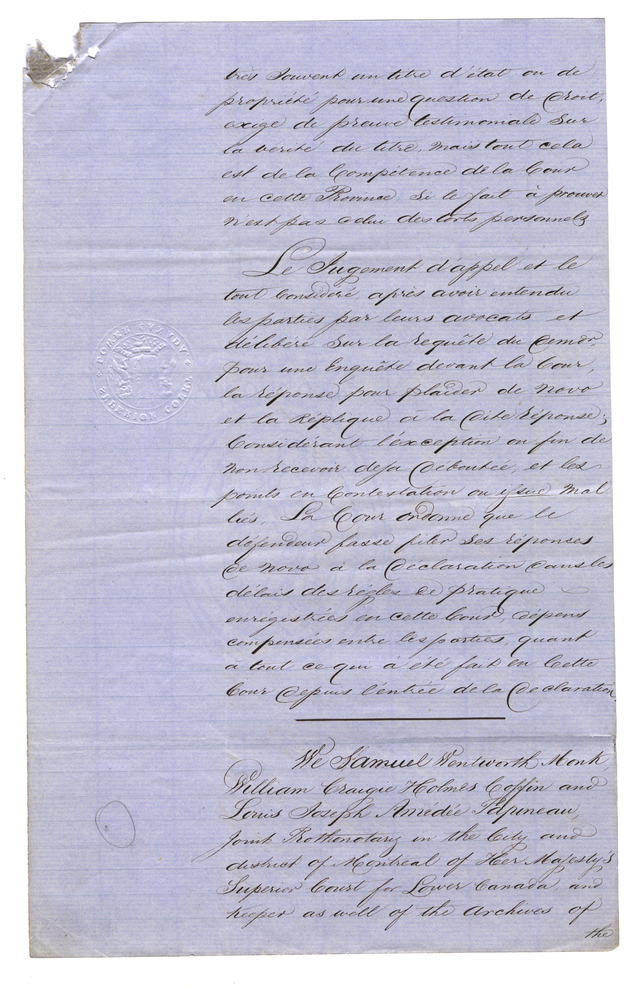 très souvent un titre d'état ou de
propriété pour une question de droit,
exige de preuve testimoniale sur
la verité du titre, mais tout cela
est de la Compétence de la Cour
en cette Province si le fait à prouver
n'est pas celui des torts personnels
Le Jugement d'appel et le
tout Considéré après avoir entendu
les parties par leurs avocats et
délibéré sur la requête du
pour une Enquête devant la Cour,
la réponse pour plaider de Novo
et la Réplique à la dite réponse;
Considérant l'éxception ou fin de
Non recevoir deja déboutée, et les
points en Contestation ou issue Mal
liés, La Cour ordonne que le
défendeur fasse filer ses réponses
de Novo à la Declaration dans les
délais des règles de pratique
enrégistrées en cette Cour, dépens
compensées entre les parties, quant
à tout ce qui à été fait en Cette
Cour depuis l'entrée de la Declaration
We Samuel Wentworth Monk
William Craigie Holmes Coffin and
Louis Joseph Amédée Papineau,
Joint Prothonotary in the City and
district of Montreal of Her Majesty's
Superior Court for Lower Canada, and
Keeper as well of the Archives of
the